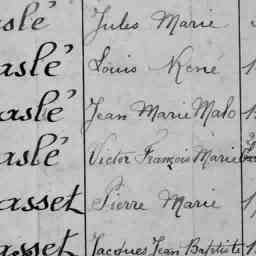 aslé Jules Marie
aslé Louis René
aslé Jean Marie Malo
aslé Victor François Marie
asset Pierre Marie
asset Jacques Jean Baptiste